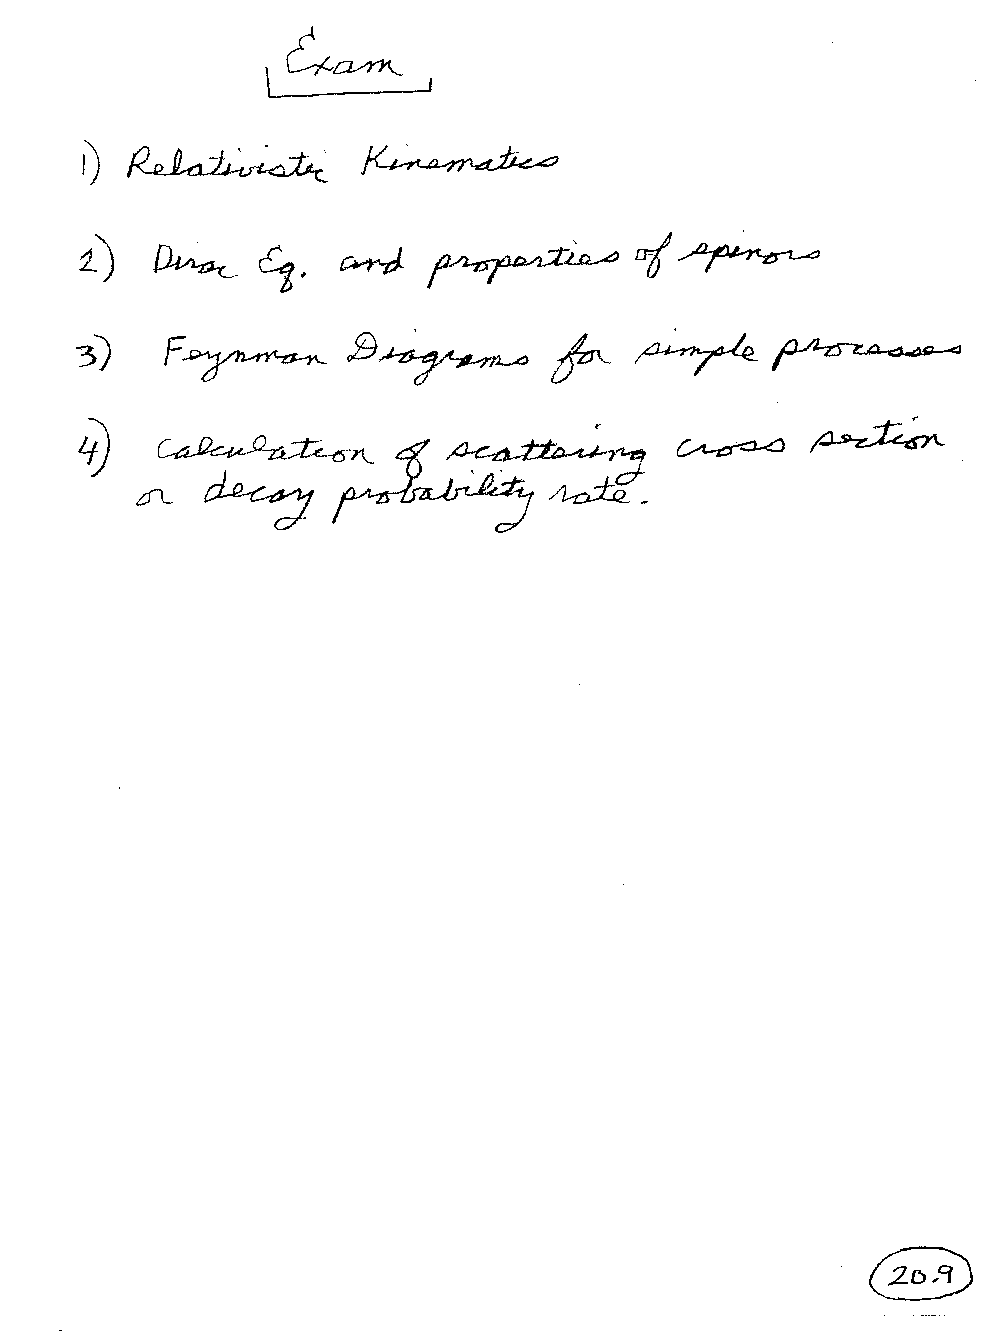 Exam
1) Relativistic Kinematics
2) Dirac Eq. and properties of spinors
3) Feynman Diagrams for simple processes
4) Calculation of scattering cross section
or decay probability rate.
20.9